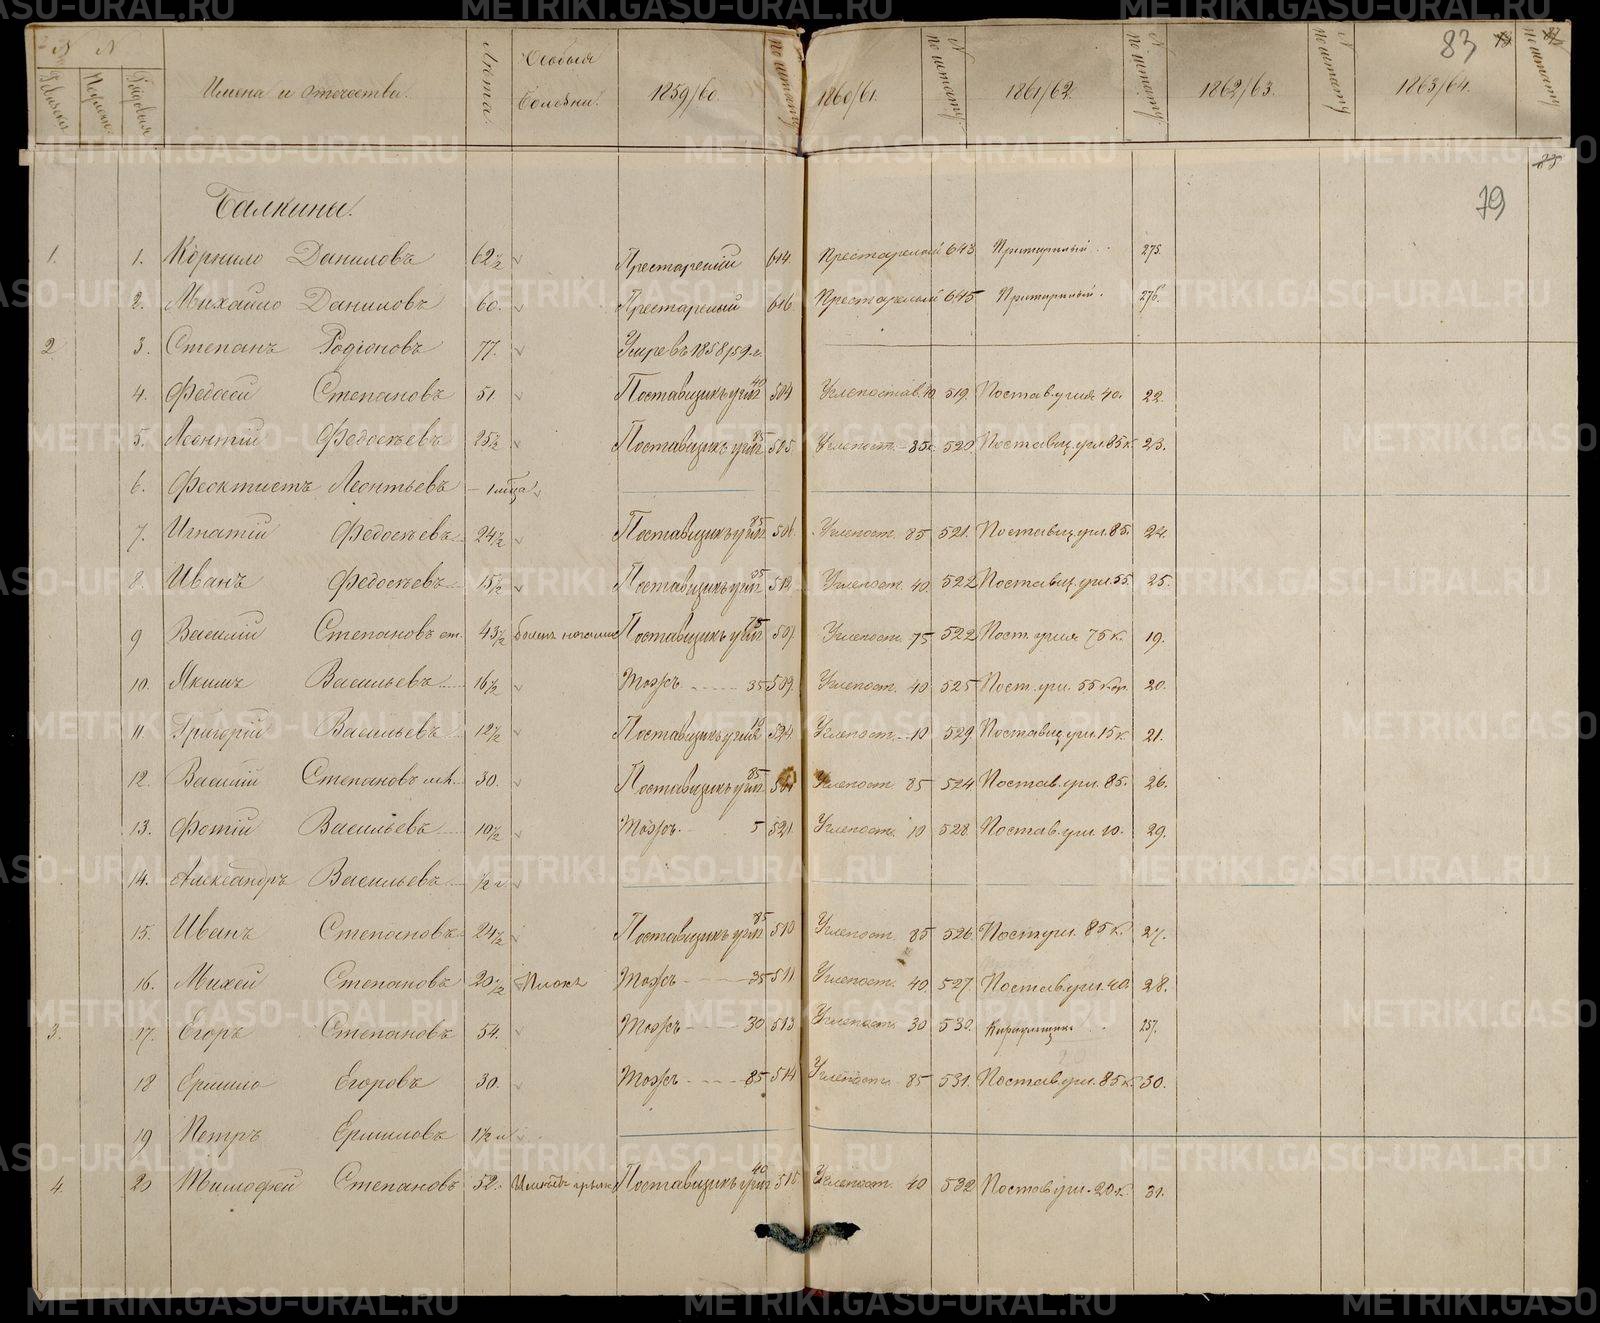 83
Имена и Отечества. Лѣта. Особыя Болѣзни. 1859/60. по штату 1860/61. № по штату 1861/62. № по штату 1862/63. № по штату 1863/64. № по штату
79
Балкины.
1. 1. Корнило Даниловъ 62½ Престарѣлый 614. Престарѣлый 643 275.
2. Михайло Даниловъ 60. Престарѣлый 616 Престарѣлый 645 276.
2 3. Степанъ Родіоновъ 77. Умре въ 1858/59 г.
4. Федосѣй Степановъ 51. Поставщикъ угля 40 504 Углепостав. 40 519 Постав. угля 40. 22
5. Леонтій Федосѣевъ 25½ Поставщикъ угля 85 505 Углепост. 85к. 520 Поставщ. угл. 85 к. 23.
6. Феоктистъ Леонтьевъ 1 мѣсца
7. Игнатій Федосѣевъ 24½ Поставщикъ угля 85 506 Углепост. 85 521. Поставщ. угл. 85. 24.
8. Иванъ Федосѣевъ 15½ Поставщикъ угля 35 512 Углепост. 40. 522 Поставщ. угл. 55. 25.
9 Василій Степановъ ст. 43½ Поставщикъ угля 75 507 Углепост. 75 522 Пост. угля 75 к. 19.
10. Якимъ Васильевъ 16½ Тожъ 35 509 Углепост. 40 525 Пост. угл. 55 кор. 20.
11. Григорій Васильевъ 12½ Поставщикъ угля 10 524 Углепост. 10 529 Поставщ. угл. 15 к. 21.
12. Василій Степановъ мл. 30. Поставщикъ угля 85 Углепост. 85 524 Постав. угл. 85. 26.
13. Фотій Васильевъ 10½ Тожъ. 5 521. Углепост. 10 528 Постав. угл. 10. 29.
14. Александръ Васильевъ ½ г.
15. Иванъ Степановъ 24½ Поставщикъ угля 85 510 Углепост. 85 526 Пост. угл. 85 к. 27.
16. Михей Степановъ 20½ Плохъ Тожъ 35 511 Углепост. 40. 527. Постав. угл. 40. 28.
3. 17. Егоръ Степановъ 54. Тожъ 30 513 Углепост. 30 530. Караульщикъ 257.
18 Ермило Егоровъ 30. Тожъ 85 514 Углепост. 85 531. Постав. угл. 85 к. 30.
19 Петръ Ермиловъ 1½ м
4. 20 Тимофей Степановъ 52. Поставщикъ угля 40 515 Углепост. 40 532 Постав. угл. 20 к. 31.
METRIKI.GASO-URAL.RU